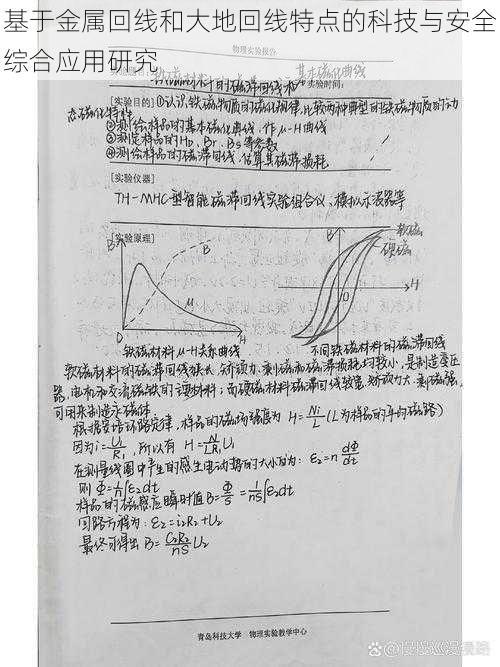 基于金属回线和大地回线特点的科技与安全
综合应用研究
物理实验报告
铁磁材料的磁滞回线和基本磁化曲线
实验时间:
[实验目的] ①认识铁磁物质的磁化规律,比较两种典型的铁磁物质的动
态磁化特性
②测绘样品的基本磁化曲线,作μ-H曲线
③测定样品的HD、Br、Bs等参数
④测绘样品的磁滞回线,估算其磁滞损耗
[实验仪器]
TH-MHC型智能磁滞回线实验组合仪、模拟示波器等
[实验原理]
B
B
μ
O
H
B
软磁
硬磁
H
O
铁磁材料μ-H关系曲线
不同铁磁材料的磁滞回线
软磁材料的磁滞回线狭长、矫顽力、剩磁和磁滞损耗均较小,是制造变压
器、电机和交流磁铁的主要材料;而硬磁材料磁滞回线较宽,矫顽力大,剩磁强,
可用来制造永磁体
根据安培环路定律,样品的磁场强度为 H=Ni/L (L为样品的平均磁路)
因为i=U₁/R₁,所以有 H=N/LR₁ U₁
在测量线圈中产生的感生电动势的大小为:ε₂=n dΦ/dt
则 Φ=1/n∫ε₂dt
样品的磁感应瞬时值B=Φ/S=1/nS∫ε₂dt
回路方程为:ε₂=i₂R₂+U₂
最终可得出 B=C₂R₂/nS U₂
青岛科技大学 物理实验教学中心